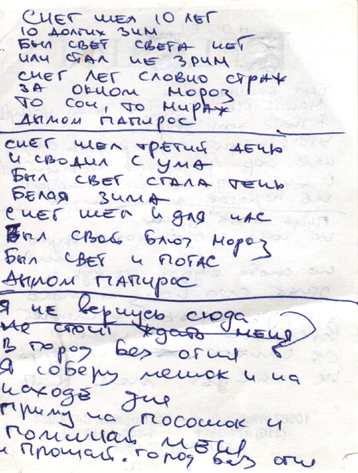 СНЕГ ШЕЛ 10 ЛЕТ
10 ДОЛГИХ ЗИМ
БЫЛ СВЕТ СВЕТА НЕТ
ИЛИ СТАЛ НЕ ЗРИМ
СНЕГ ЛЕГ СЛОВНО СТРАХ
ЗА ОКНОМ МОРОЗ
ТО СОН, ТО МИРАЖ
ДЫМОМ ПАПИРОС
СНЕГ ШЕЛ ТРЕТИЙ ДЕНЬ
И СВОДИЛ С УМА
БЫЛ СВЕТ СТАЛА ТЕНЬ
БЕЛАЯ ЗИМА
СНЕГ ШЕЛ И ДЛЯ НАС
БЫЛ СВОЙ БЛЮЗ МОРОЗ
БЫЛ СВЕТ И ПОГАС
ДЫМОМ ПАПИРОС
Я не вернусь сюда
Не стоит ждать меня
В город без огня
Я соберу мешок и на
исходе дня
Приму на посошок и
Поминай меня
и Прощай. город без огня